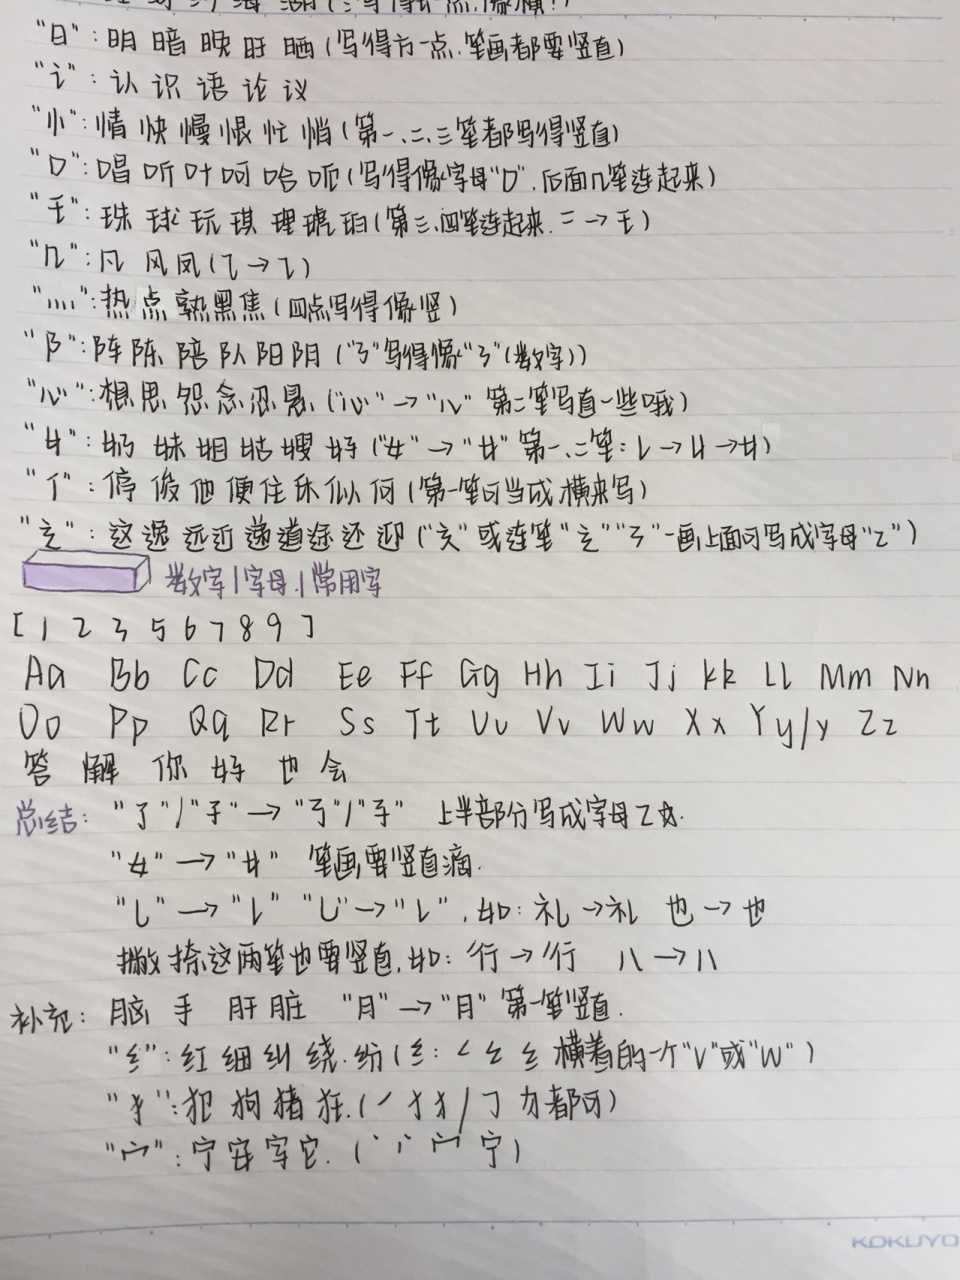 "日": 明 暗 晚 旺 晒 (写得方一点.笔画都要竖直)
"讠": 认 识 语 论 议
"忄": 情 快 慢 恨 忙 悄 (第一、二、三笔都写得竖直)
"口": 唱 听 叶 呵 哈 呃 (写得像字母"D".后面几笔连起来)
"王": 珠 球 玩 琪 理 琥 珀 (第三、四笔连起来. 二 → 王)
"几": 凡 风 凤 (⺄ → ⺄)
"灬": 热 点 熟 黑 焦 (四点写得像竖)
"阝": 阵 陈 陪 队 阳 阴 ("3"写得像"3"(数字))
"心": 想 思 怨 念 忍 悬 ("心" → "心" 第二笔写直一些哦)
"女": 奶 妹 姐 姑 嫂 好 ("女" → "女" 第一、二笔: 𠄌 → 女 → 女)
"亻": 停 俊 他 便 住 休 似 何 (第一笔可当成横来写)
"辶": 这 逸 远 近 递 道 途 还 迎 ("辶"或连笔"辶" "3"一画上面可写成字母"Z")
数字 / 字母. / 常用字
[ 1 2 3 5 6 7 8 9 ]
Aa Bb Cc Dd Ee Ff Gg Hh Ii Jj Kk Ll Mm Nn
Oo Pp Qq Rr Ss Tt Uu Vv Ww Xx Yy/y Zz
答 解 你 好 也 会
总结: "了"/"子" → "了"/"子" 上半部分写成字母Z
"女" → "女" 笔画要竖直滴.
"乚" → "乚" "乚" → "乚". 如: 礼 → 礼 也 → 也
撇捺这两笔也要竖直.如: 行 → 行 八 → 八
补充: 脑 手 肝 脏 "月" → "月" 第一笔竖直.
"纟": 红 细 纠 绕. 纷 (纟: ㄥ 纟 纟 横着的一个"V"或"W")
"犭": 犯 狗 猪 狂. (丿 犭 犭 / ㇆ 力都可)
"宀": 宁 安 字 它. (丶 丷 宀 宁)
KOKUYO